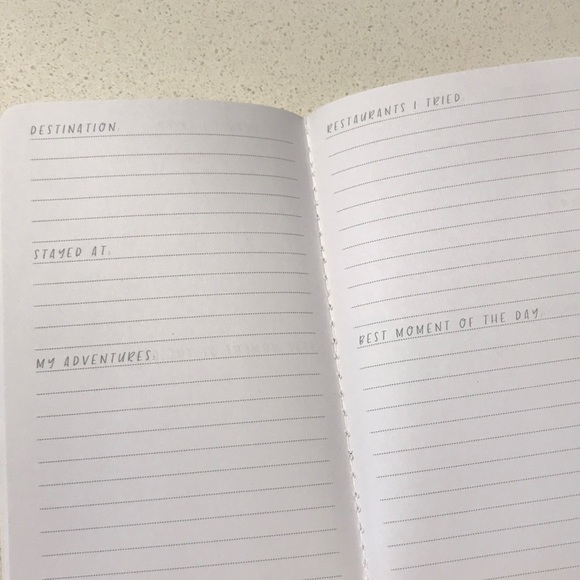 DESTINATION:
STAYED AT:
MY ADVENTURES:
RESTAURANTS I TRIED:
BEST MOMENT OF THE DAY: